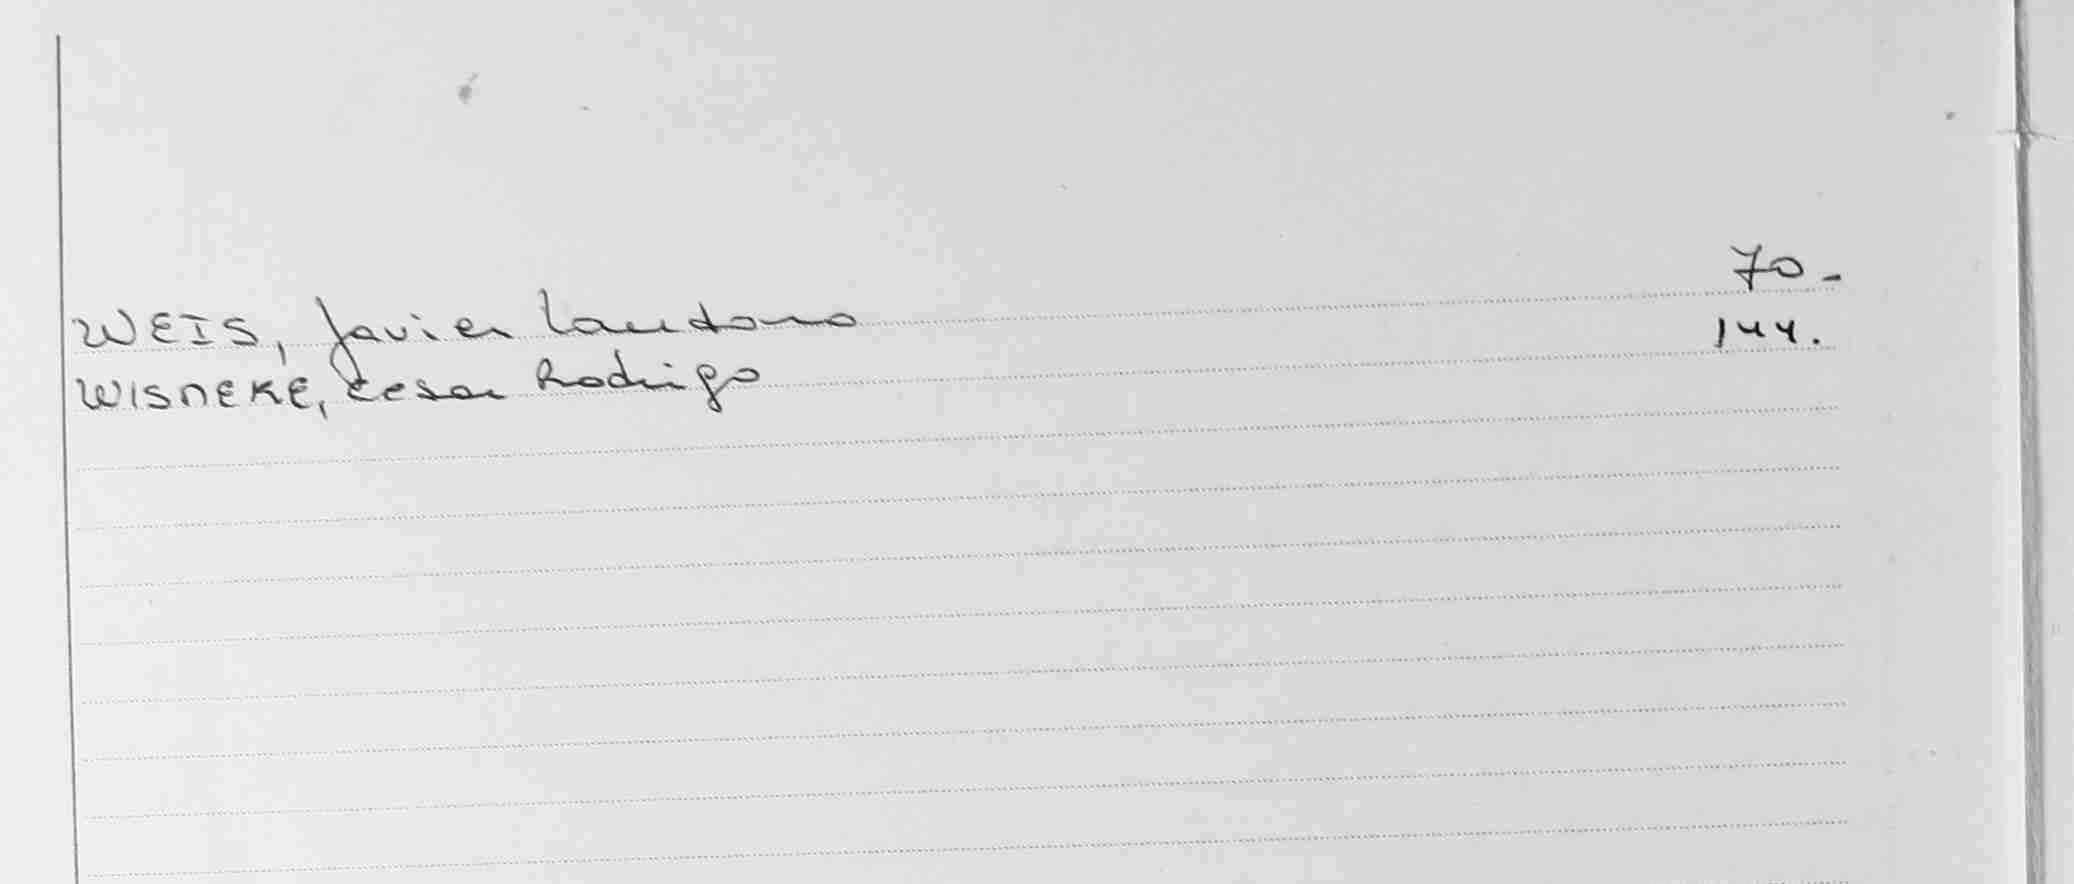 WEIS, Javier Lautaro 70-
WISNEKE, Cesar Rodrigo 144.